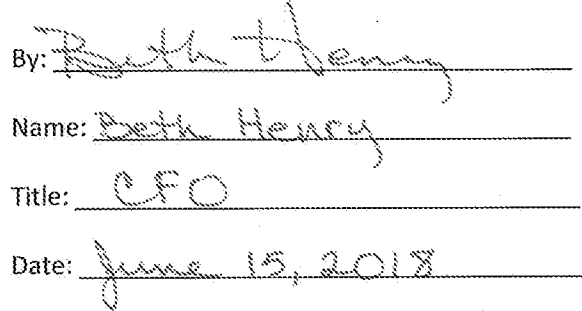 By: Beth Henry
Name: Beth Henry
Title: CFO
Date: June 15, 2018